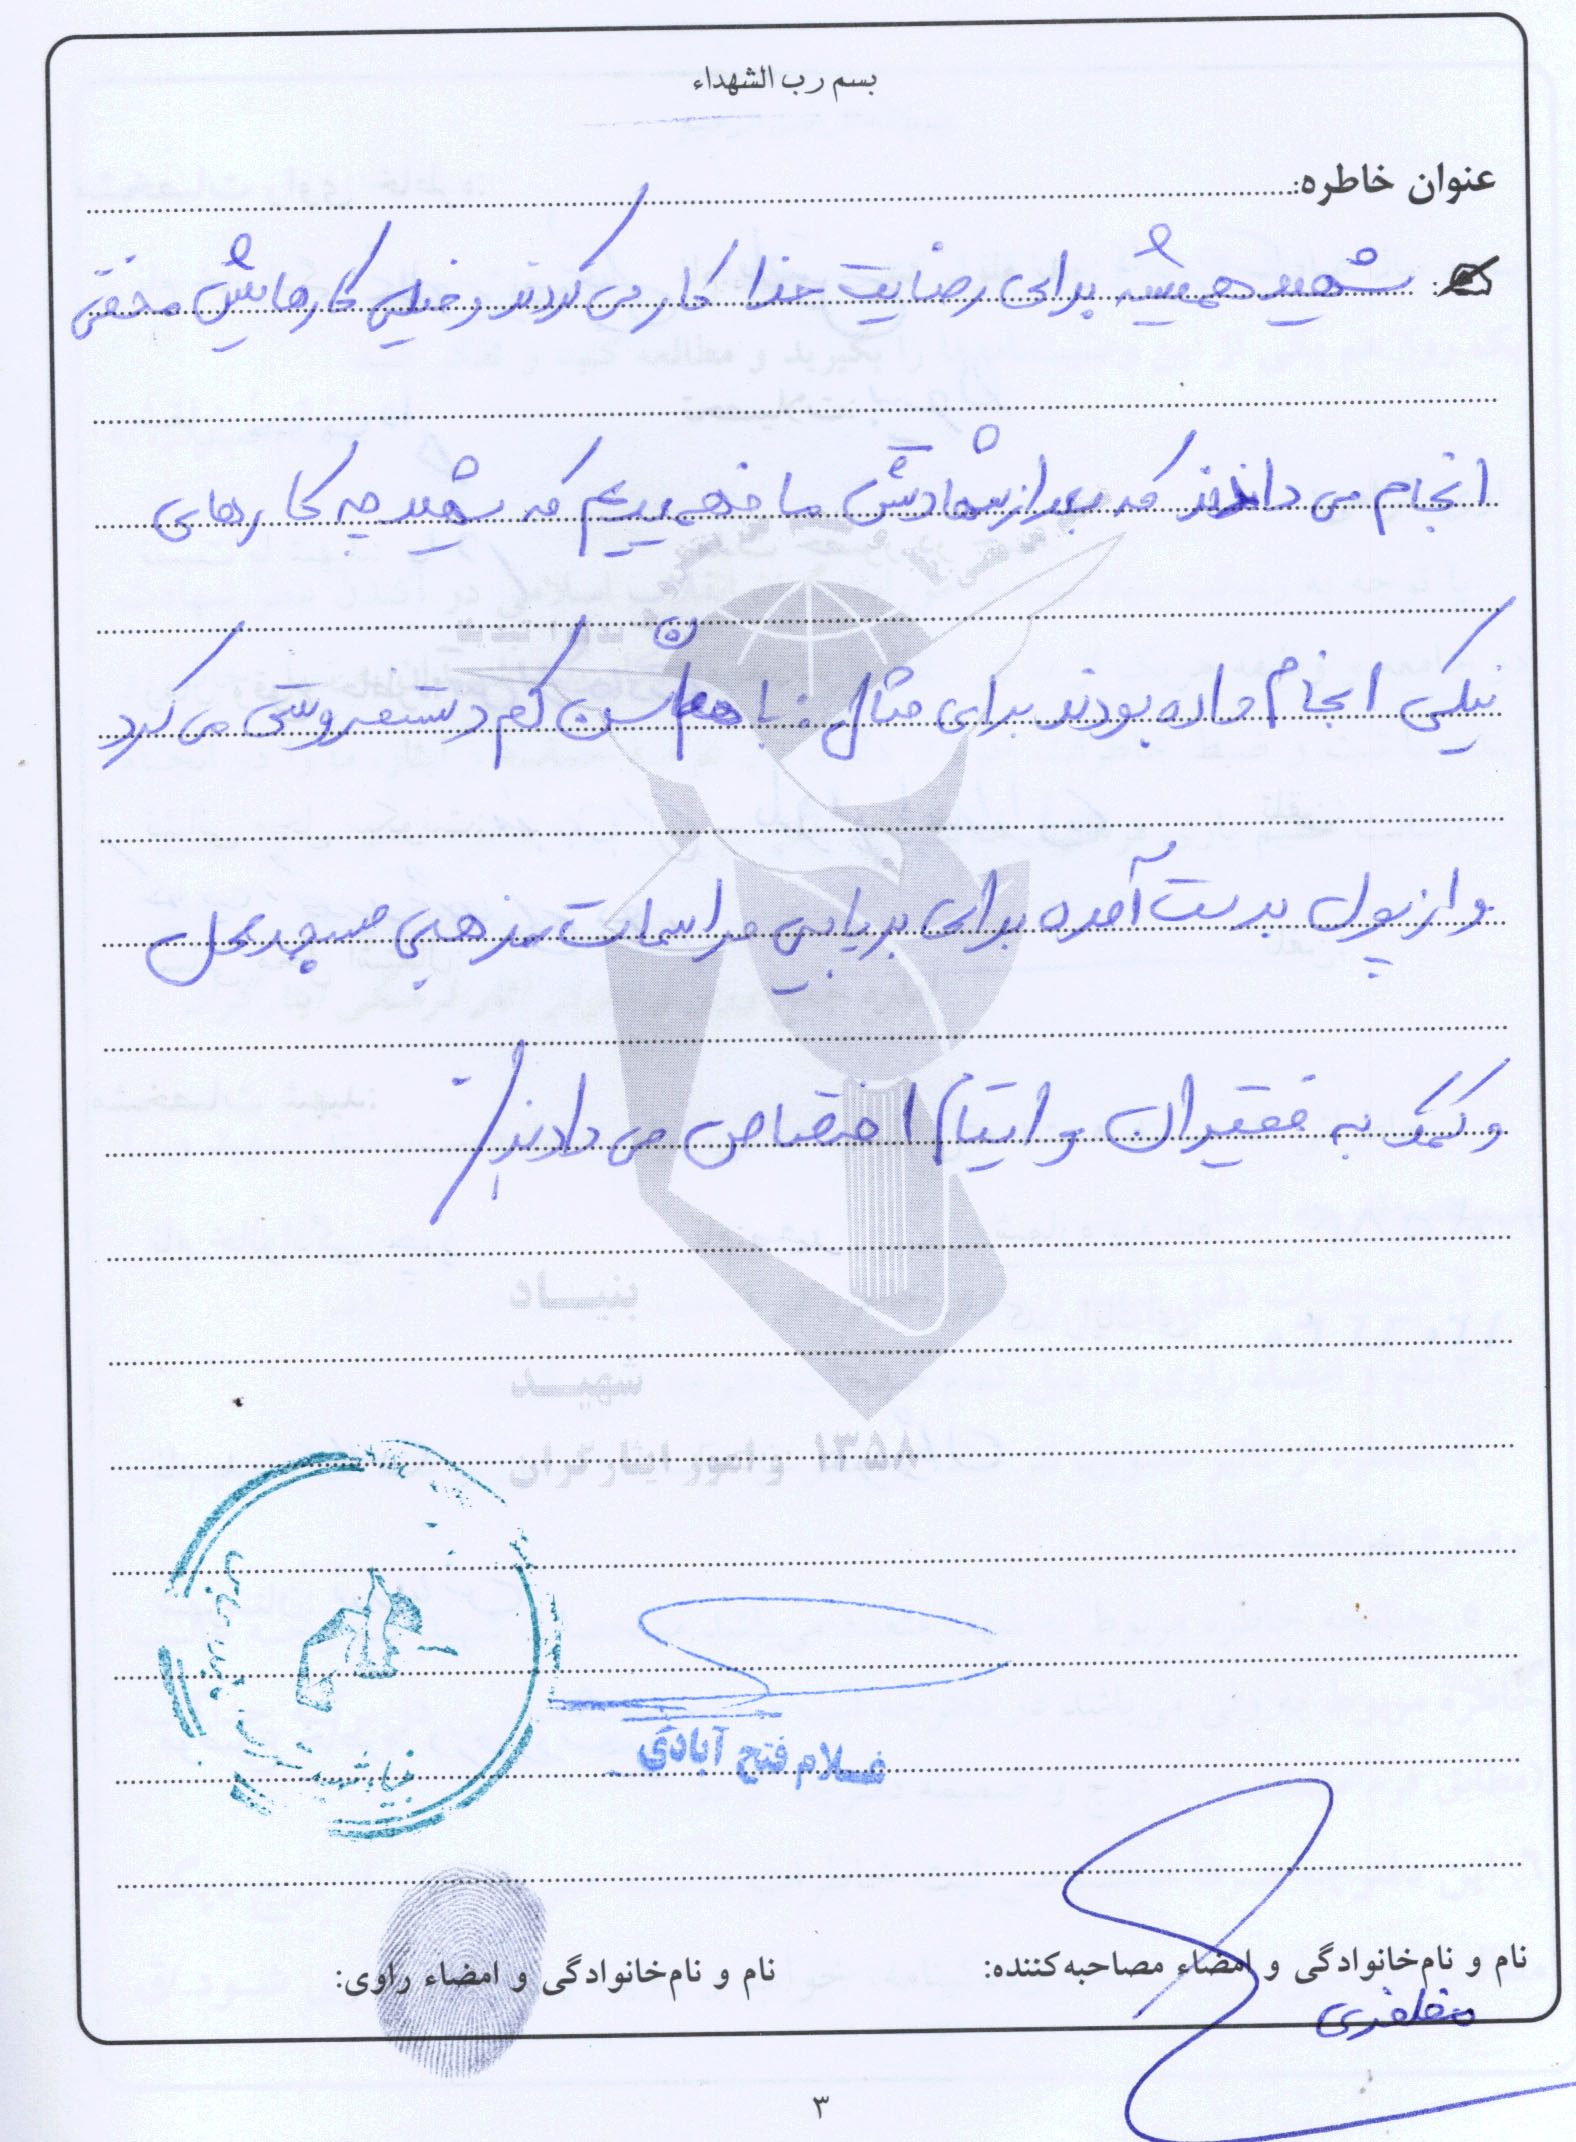 بسم رب الشهداء
عنوان خاطره:
شهید همیشه برای رضایت خدا کار می کردند و خیلی کارهایش مخفی
انجام می دادند که بعد از شهادتش ما فهمیدیم که شهید چه کارهای
نیکی انجام داده بودند برای مثال: با همان سن کم دستفروشی می کرد
و از پول بدست آمده برای برپایی مراسمات مذهبی مسجد محل
و کمک به فقیران و ایتام اختصاص می دادند.
بنیاد
شهید
و امور ایثارگران ۱۳۵۸
غلام فتح آبادی
نام و نام‌خانوادگی و امضاء مصاحبه‌کننده:
نام و نام‌خانوادگی و امضاء راوی:
مظفری
۳